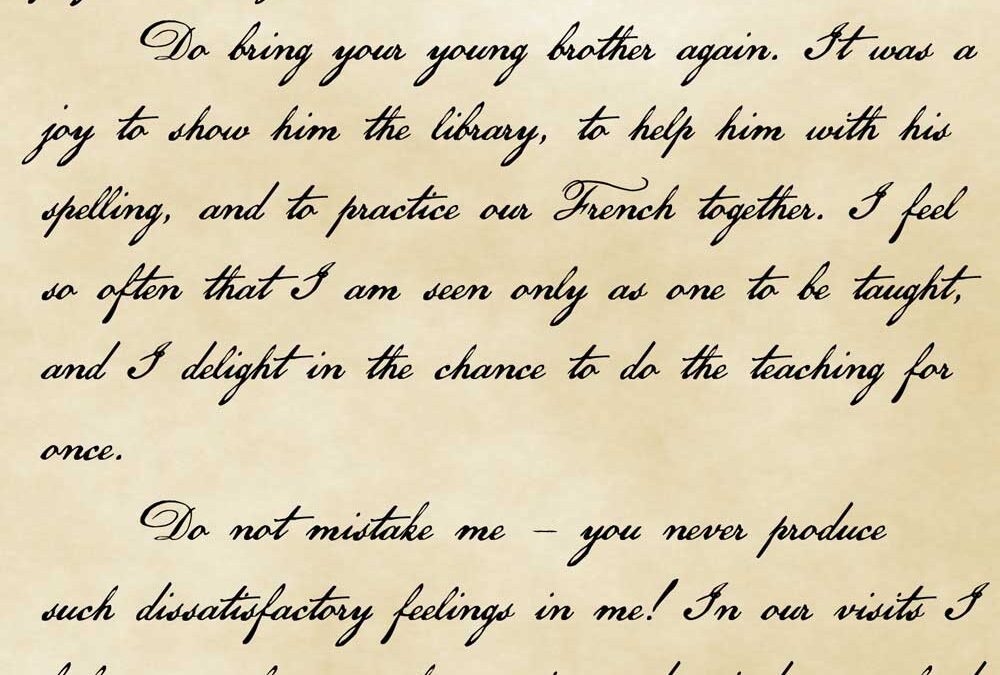 Do bring your young brother again. It was a
joy to show him the library, to help him with his
spelling, and to practice our French together. I feel
so often that I am seen only as one to be taught,
and I delight in the chance to do the teaching for
once.
Do not mistake me – you never produce
such dissatisfactory feelings in me! In our visits I